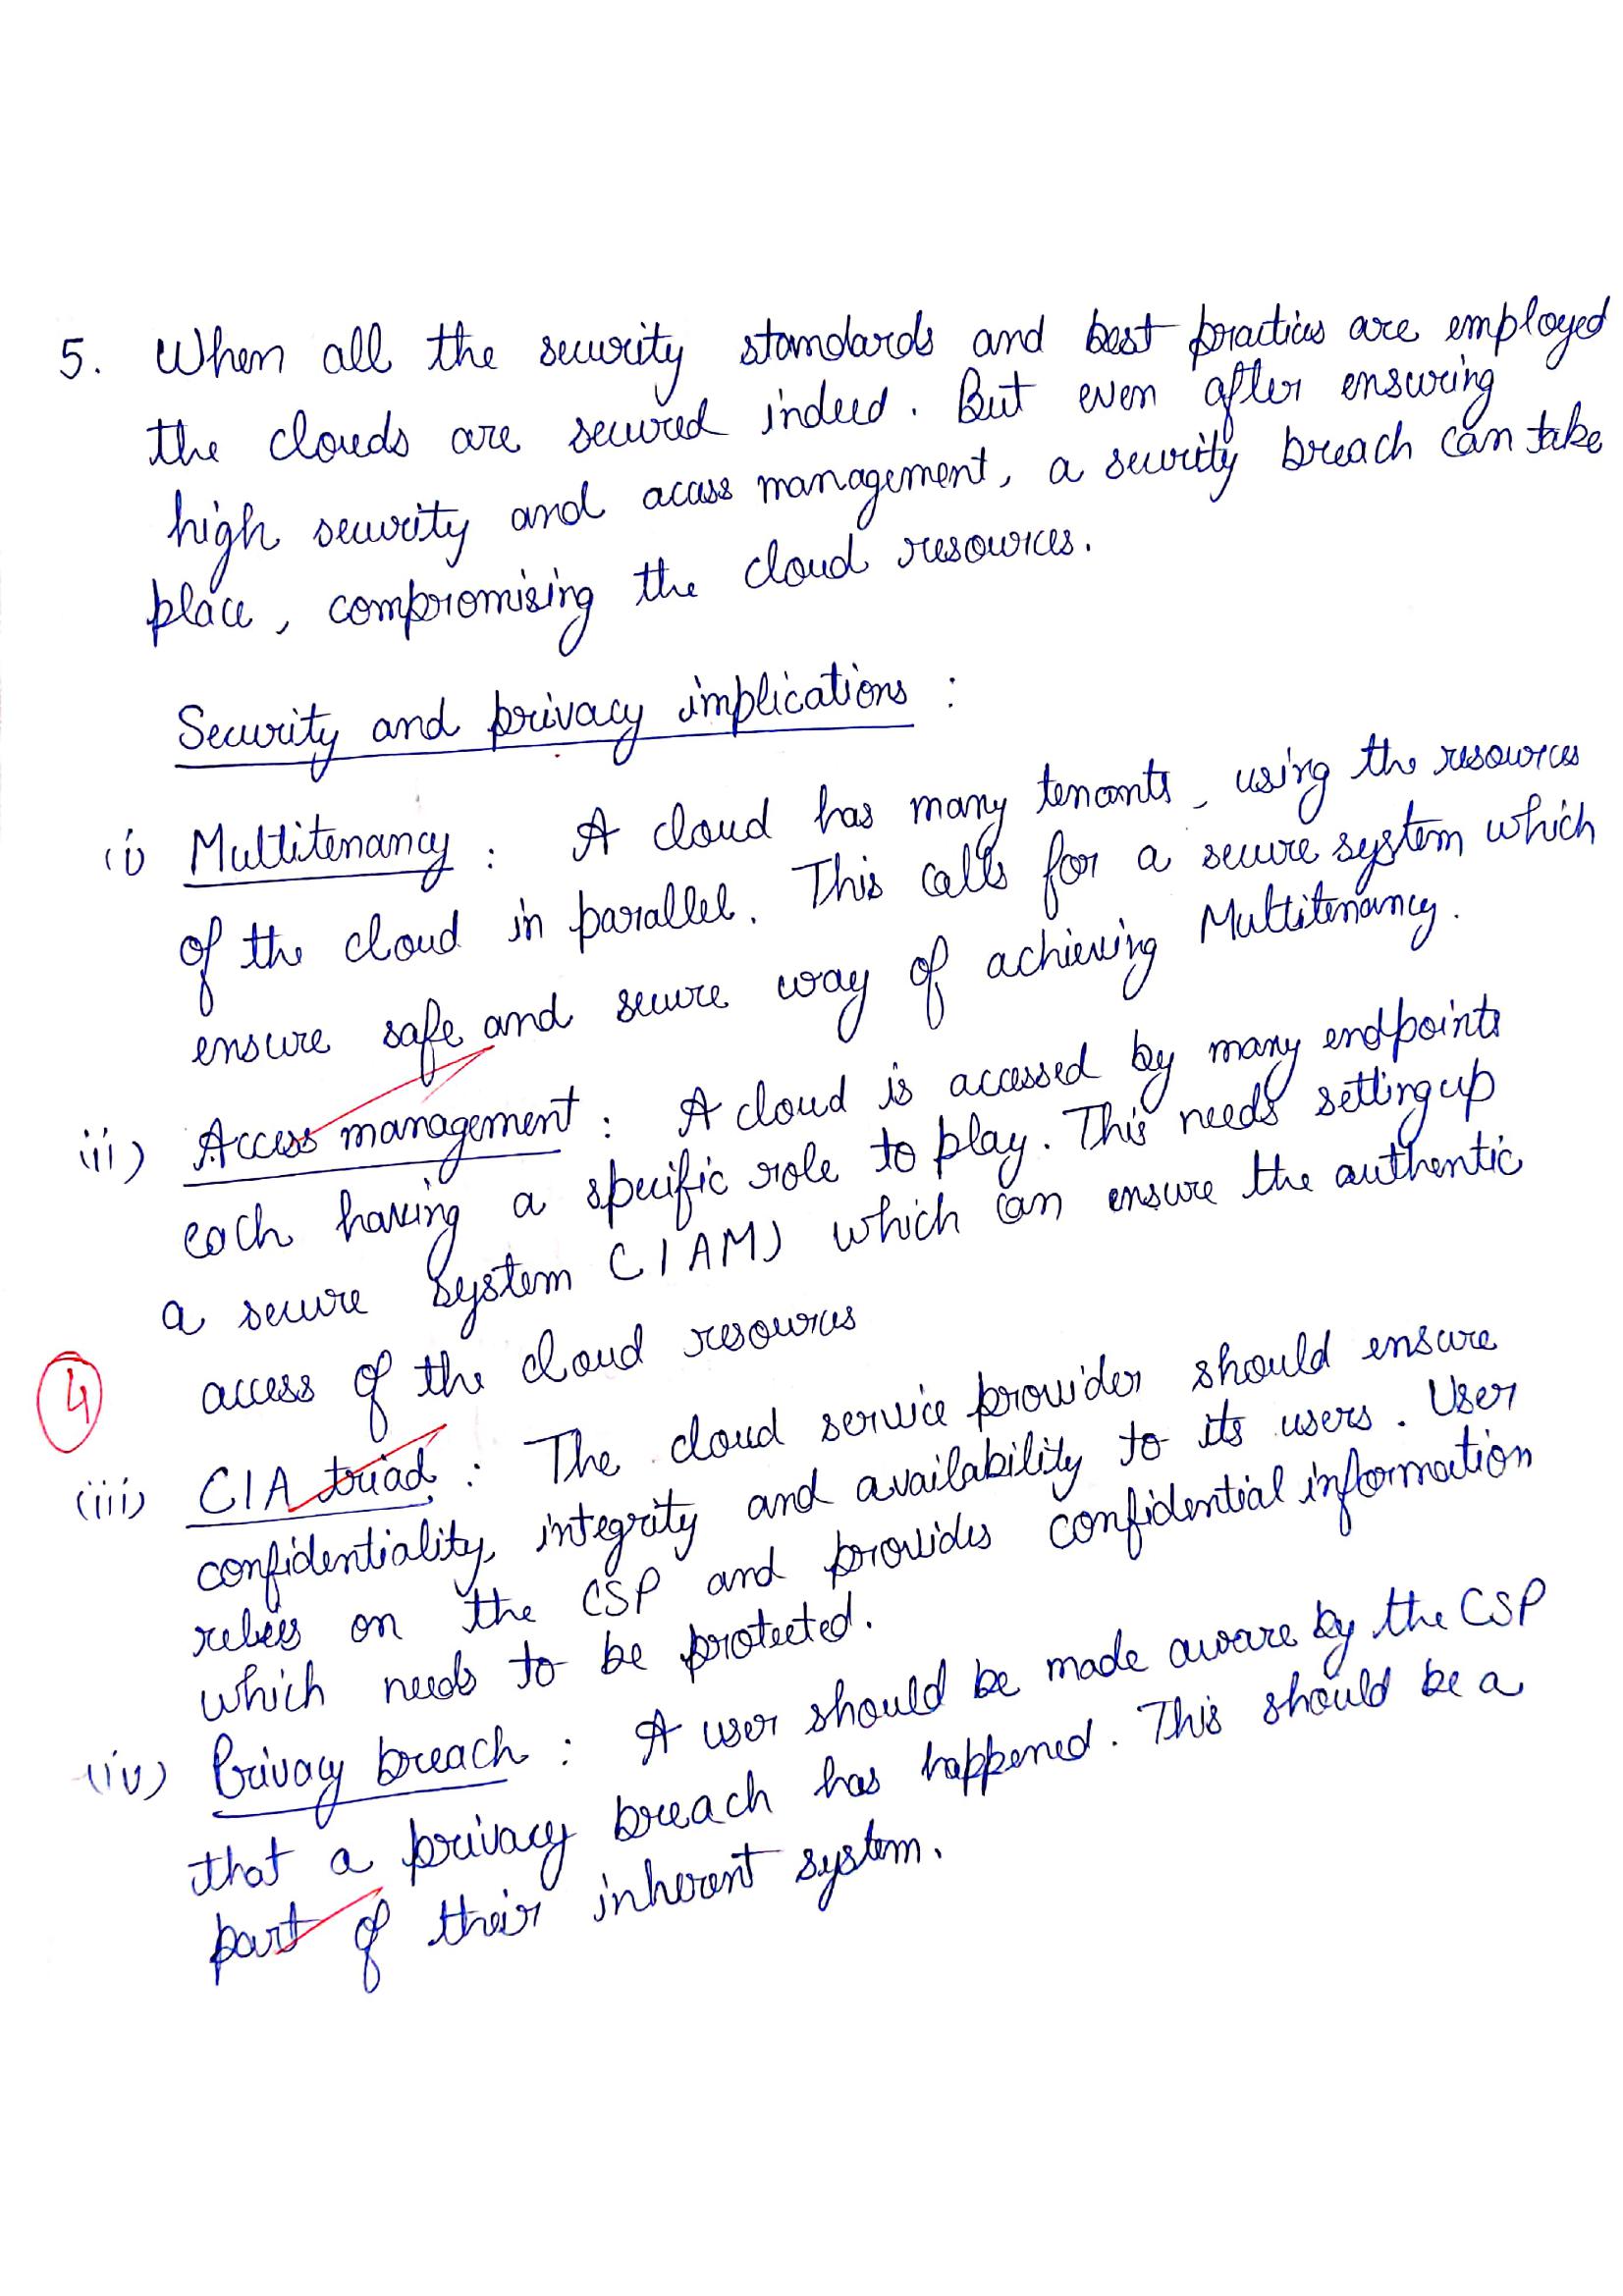 5. When all the security standards and best practices are employed
the clouds are secured indeed. But even after ensuring
high security and access management, a security breach can take
place, compromising the cloud resources.
Security and privacy implications :
(i) Multitenancy : A cloud has many tenants, using the resources
of the cloud in parallel. This calls for a secure system which
ensure safe and secure way of achieving Multitenancy.
ii) Access management : A cloud is accessed by many endpoints
each having a specific role to play. This needs setting up
a secure system (IAM) which can ensure the authentic
access of the cloud resources
4
(iii) CIA triad : The cloud service provider should ensure
confidentiality, integrity and availability to its users. User
relies on the CSP and provides confidential information
which needs to be protected.
(iv) Privacy breach : A user should be made aware by the CSP
that a privacy breach has happened. This should be a
part of their inherent system.